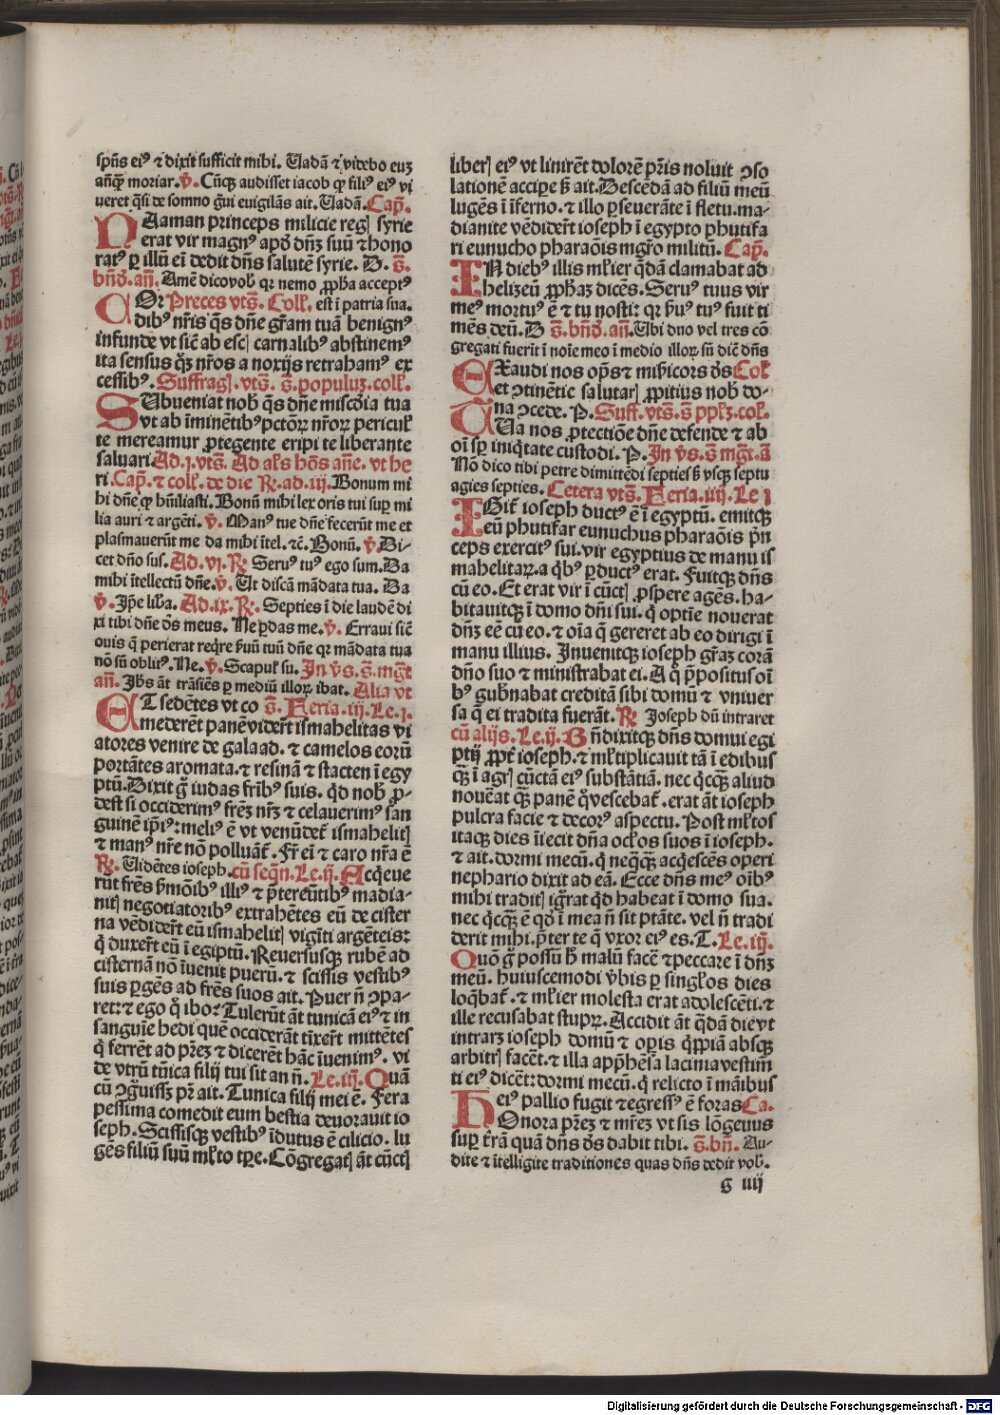 spūs ei⁹ ⁊ dixit sufficit mihi. Uadā ⁊ videbo euꝫ
añq̄ꝫ moriar. ℣. Cūqꝫ audisset iacob ꝙ fili⁹ ei⁹ vi
ueret q̄si de somno g̃ui euigilās ait. Uadā. Cap̄.
NAaman princeps milicie regꝭ syrie
erat vir magn⁹ apď dñꝫ suū ⁊ hono
rat⁹ ꝑ illū em̄ dedit dñs salutē syrie. D. S̄.
bñď. añ. Amē dico vob̄ qꝛ nemo ꝓpha accept⁹
COr Preces vtS̄. Coll̄. est ī patria sua.
dib⁹ nr̄is q̄s dñe gr̄am tuā benign⁹
infunde vt sic̄ ab escꝭ carnalib⁹ abstinem⁹
ita sensus qꝫ nr̄os a noxijs retraham⁹ ex
cessib⁹. Suffragꝭ. vtS̄. S̄. populuꝫ. coll̄.
SUbueniat nob̄ q̄s dñe mis̄cdia tua
vt ab iminētib⁹ pctōꝝ nr̄oꝝ pericul̄
te mereamur ꝓtegente eripi te liberante
saluari. Ad. j. vtS̄. Ad al̄s hōs añe. vt he
ri. Cap̄. ⁊ coll̄. de die ℟. ad. iij. Bonum mi
hi dñe ꝙ hūiliasti. Bonū mihi lex oris tui suꝑ mi
lia auri ⁊ argēti. ℣. Man⁹ tue dñe fecerūt me et
plasmauerūt me da mihi ītel. ⁊c̄. Bonū. ℣ Di-
cet dño sus. Ad. vi. ℟ Seru⁹ tu⁹ ego sum. Da
mihi ītellectū dñe. ℣. Ut discā mādata tua. Da
℣. Ip̄e lib̄a. Ad. ix. ℟. Septies ī die laudē di
xi tibi dñe ds̄ meus. Ne ꝑdas me. ℣. Erraui sic̄
ouis q̄ perierat reqͥre ẜuū tuū dñe qꝛ mādata tua
nō sū oblit⁹. Ne. ℣. Scapul̄ su. In v̄s. S̄. mg̃t
añ. Ihs āt trāsiēs ꝑ mediū illoꝝ ibat. Alia vt
ET sedētes vt co S̄. Feria. iij. Le. j.
mederēt panē viderūt ismahelitas vi
atores venire de galaad. ⁊ camelos eorū
portātes aromata. ⁊ resinā ⁊ stacten ī egy
ptū. Dixit g̊ iudas fr̄ib⁹ suis. qd nob̄ ꝓ-
dest si occiderim⁹ fr̄eꝫ nr̄ꝫ ⁊ celauerim⁹ san
guinē ip̄i⁹: meli⁹ ē vt venūdet̄ ismahelitꝭ
⁊ man⁹ nr̄e nō polluāt̄. Fr̄ ei̅ ⁊ caro nr̄a ē
℟. Uidētes ioseph. cū seq̄n. Le. ij. Acqͥeue
rūt fr̄es ẜmōib⁹ illi⁹ ⁊ p̄tereūtib⁹ madia-
nitꝭ negotiatorib⁹ extrahētes eū de cister
na vēdider̄t eū ismahelitꝭ vigīti argēteis:
q̇ duxer̄t eū ī egiptū. Reuersusqꝫ rubē ad
cisternā nō īuenit puerū. ⁊ scissis vestib⁹
suis ꝑgēs ad fr̄es suos ait. Puer ñ ꝯpa-
ret: ⁊ ego q̊ ibo: Tulerūt āt tunicā ei⁹ ⁊ in
sanguīe hedi quē occiderāt tīxer̄t mittētes
q̇ ferrēt ad pr̄eꝫ ⁊ dicerēt hāc īuenim⁹. vi
de vtrū tūica filij tui sit an ñ. Le. iij. Quā
cū ꝯg̊uissꝫ pr̄ ait. Tunica filij mei ē. Fera
pessima comedit eum bestia deuorauit io
seph. Scissisqꝫ vestib⁹ īdutus ē cilicio. lu
gēs filiū suū ml̄to tꝑe. Cōgregatꝭ āt cūctꝭ
liberꝭ ei⁹ vt linirēt dolorē pr̄is noluit ꝯso
lationē accipe s̄ ait. Descēdā ad filiū meū
lugēs ī īferno. ⁊ illo ꝑseuerāte ī fletu. ma-
dianite vēdider̄t ioseph ī egypto phutifa
ri eunucho pharaōis mgr̄o militū. Cap̄.
IN dieb⁹ illis ml̄ier q̄dā clamabat ad
helizeū ꝓphaꝫ dicēs. Seru⁹ tuus vir
me⁹ mortu⁹ ē ⁊ tu nosti: qꝛ ẜu⁹ tu⁹ fuit ti
mēs deū. D S̄. bñď. añ. Ubi duo vel tres cō
gregati fuerīt ī noīe meo ī medio illoꝝ sū dic̄ dñs
EXaudi nos oꝑs ⁊ mis̄icors ds̄ Col̄
et ꝯtinētie salutarꝭ ꝓpitius nob̄ do-
na ꝯcede. P. Suff. vtS̄. S̄ pp̄lꝫ. col̄.
TUa nos ꝓtectiōe dñe defende ⁊ ab
oī sꝑ iniqͥtate custodi. P. In v̄s. S̄ mg̃t. ā
Nō dico tibi petre dimittēdi septies s̄ vsqꝫ septu
agies septies. Cetera vtS̄. Feria. iiij. Le j
IGit̄ ioseph duct⁹ ē ī egyptū. emitqꝫ
eū phutifar eunuchus pharaōis p̄n
ceps exercit⁹ sui. vir egyptius de manu is
mahelitaꝝ. a qͥb⁹ ꝑduct⁹ erat. Fuitqꝫ dñs
cū eo. Et erat vir ī cūctꝭ ꝓspere agēs. ha-
bitauitqꝫ ī domo dñi sui. q̇ optīe nouerat
dñꝫ eē cū eo. ⁊ oīa q̄ gereret ab eo dirigi ī
manu illius. Inuenitqꝫ ioseph gr̄aꝫ corā
dño suo ⁊ ministrabat ei. A q̊ p̄positus oī
b⁹ gub̄nabat creditā sibi domū ⁊ vniuer
sa q̄ ei tradita fuerāt. ℟ Joseph dū intraret
cū alijs. Le. ij. Bñdixitqꝫ dñs domui egi
ptij ꝓpt̄ ioseph. ⁊ ml̄tiplicauit tā ī edibus
qꝫ̄ ī agrꝭ cūctā ei⁹ substātiā. nec qͥcqꝫ̄ aliud
nouēat qꝫ̄ panē q̊ vescebat̄. erat āt ioseph
pulcra facie ⁊ decor⁹ aspectu. Post ml̄tos
itaqꝫ dies īiecit dña ocl̄os suos ī ioseph.
⁊ ait. dormi mecū. q̇ neqͣqꝫ̄ acqͥescēs operi
nephario dixit ad eā. Ecce dñs me⁹ oīb⁹
mihi traditꝭ ig̊rat qd habeat ī domo sua.
nec qͥcqꝫ̄ ē qď ī mea ñ sit ptāte. vel ñ tradi
derit mihi. p̄ter te q̄ vxor ei⁹ es. T. Le. iij.
Quō g̊ possū h̄ malū facē ⁊ peccare ī dñꝫ
meū. huiuscemodi v̄bis ꝑ singl̄os dies
loqͣbat̄. ⁊ ml̄ier molesta erat adolescēti. ⁊
ille recusabat stupꝝ. Accidit āt q̄dā die vt
intraꝫ ioseph domū ⁊ oꝑis qͥppiā absqꝫ
arbitrꝭ facēt. ⁊ illa app̄hēsa lacinia vestim̄
ti ei⁹ dicēt: dormi mecū. q̇ relicto ī māibus
ei⁹ pallio fugit ⁊ egress⁹ ē foras Ca.
HOnora pr̄eꝫ ⁊ mr̄eꝫ vt sis lōgeuus
suꝑ tr̄ā quā dñs ds̄ dabit tibi. S̄. bñ. Au-
dite ⁊ ītelligite traditiones quas dñs dedit vob̄.
g iiij
Digitalisierung gefördert durch die Deutsche Forschungsgemeinschaft - DFG